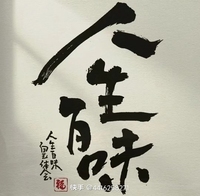 人
生
百味
人生百味
自体会
快手